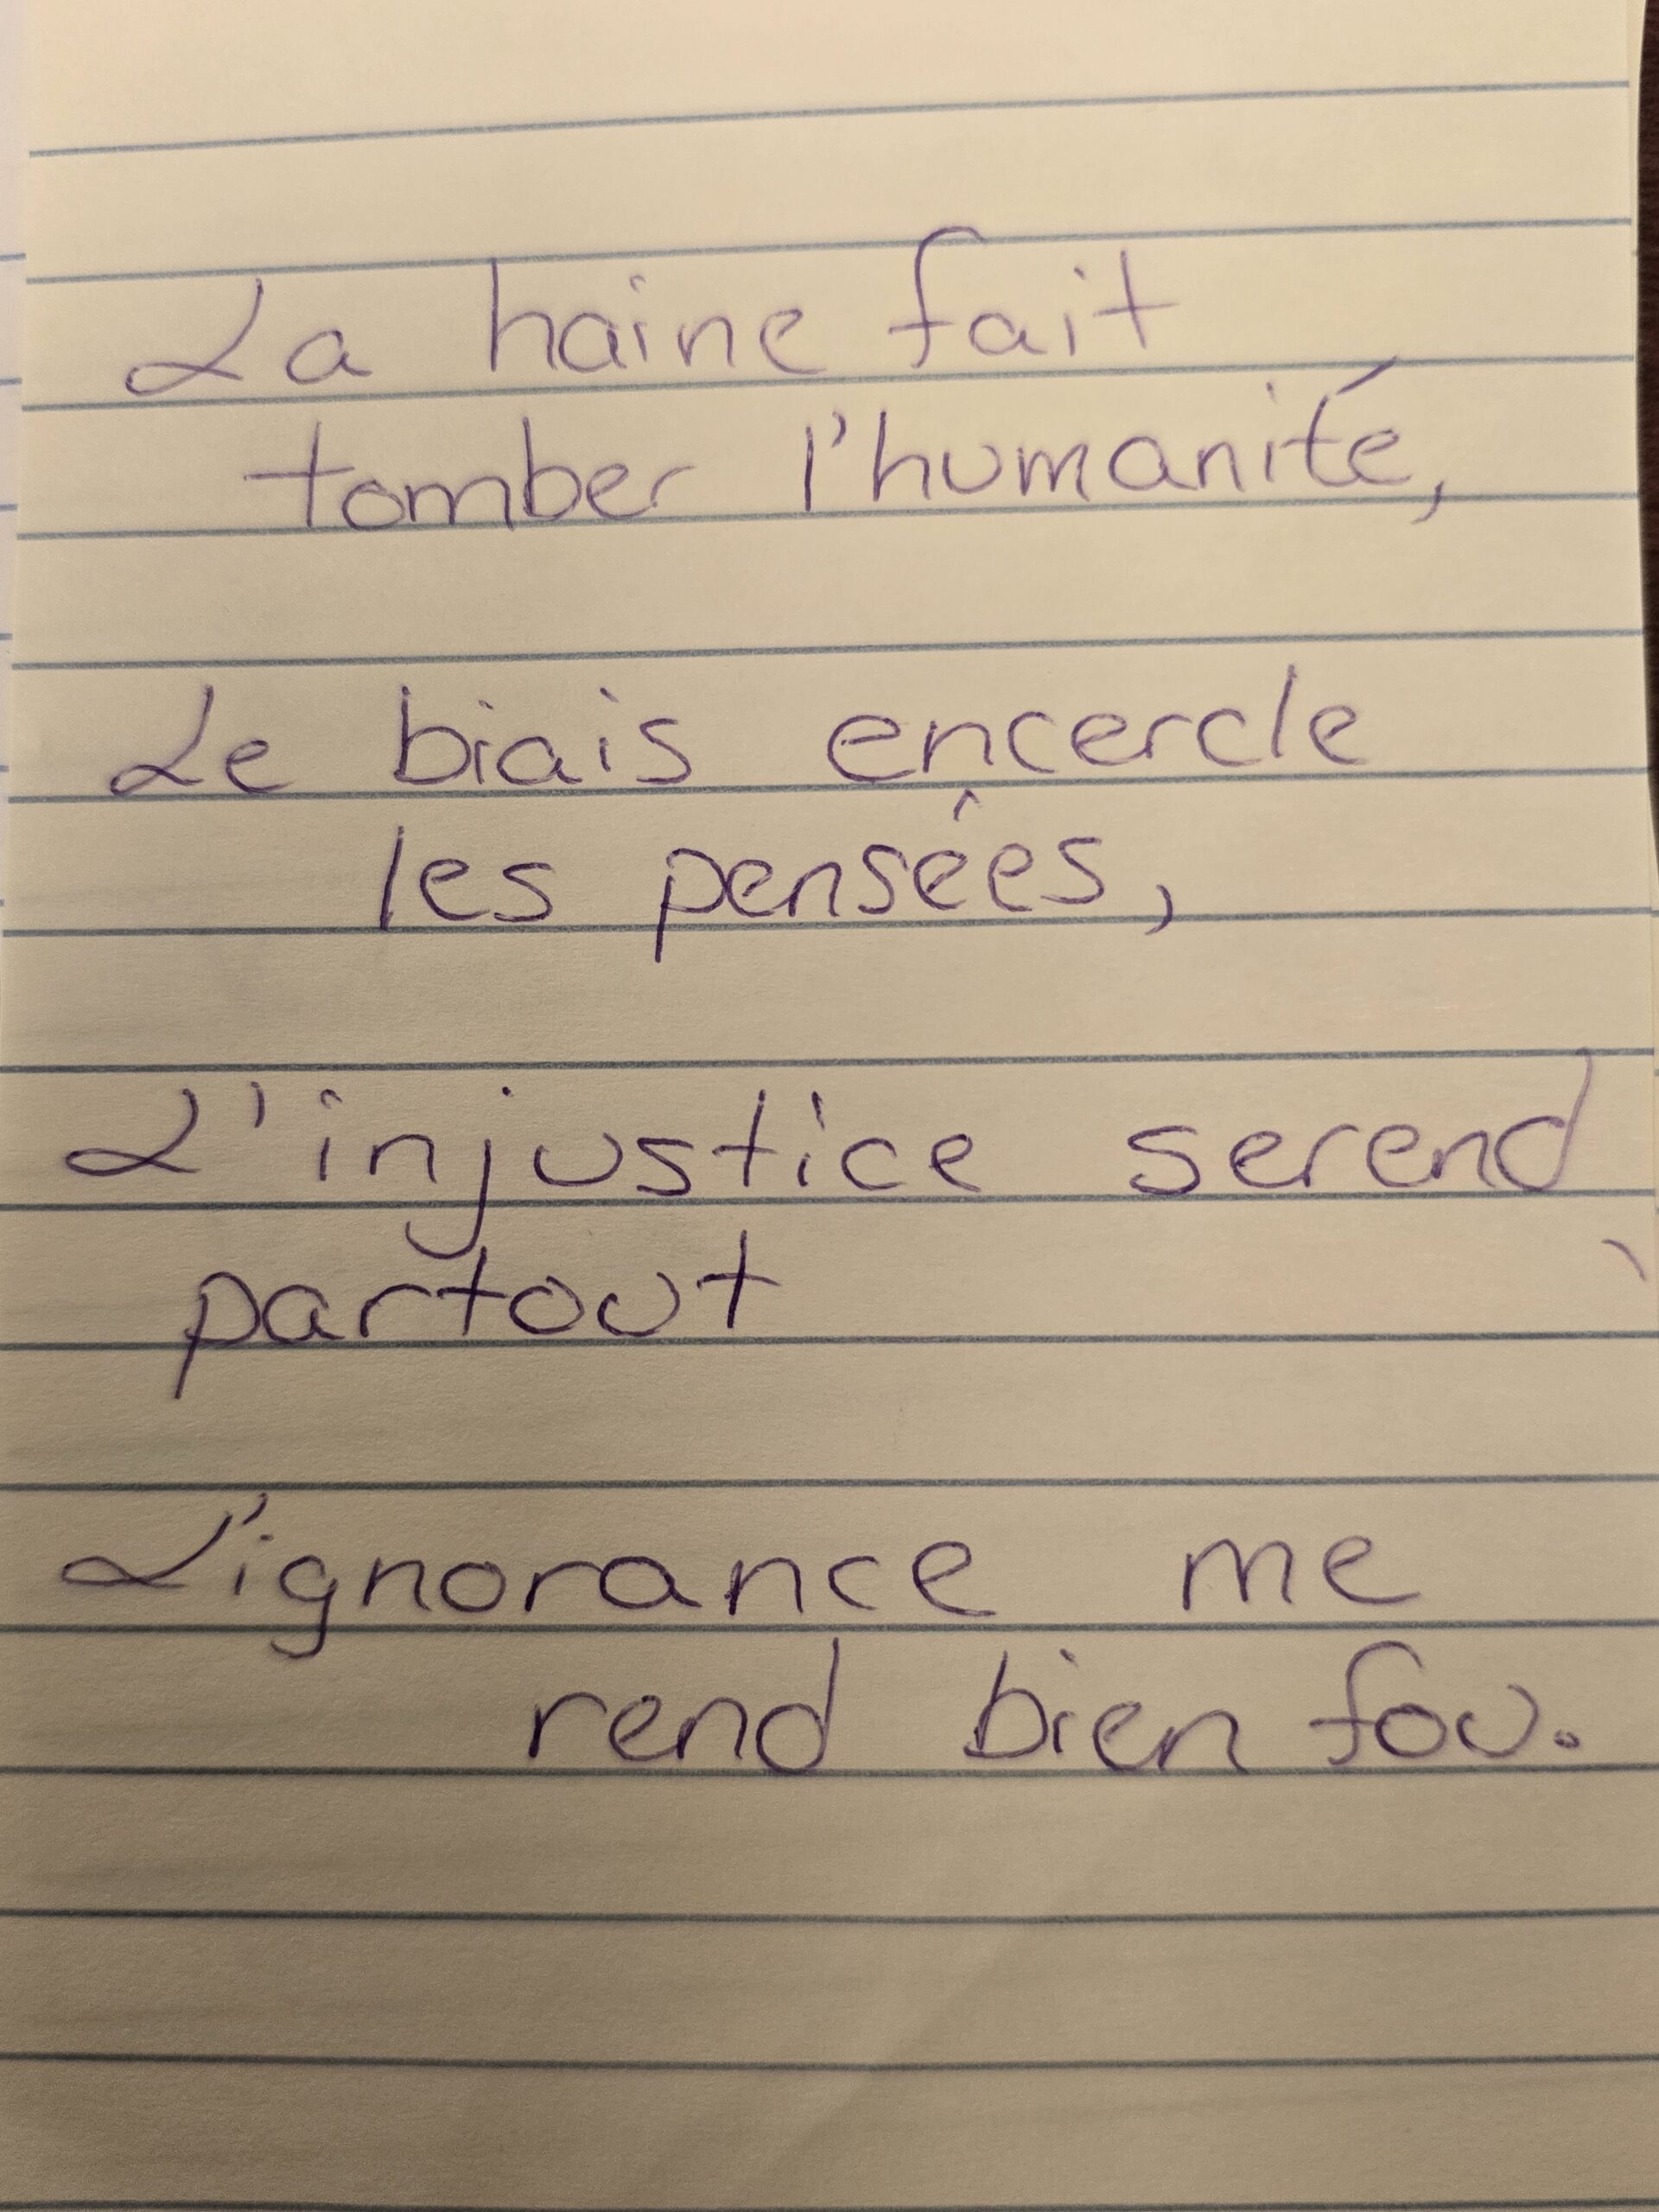 La haine fait
tomber l'humanité,
Le biais encercle
les pensées,
L'injustice serend
partout
L'ignorance me
rend bien fou.